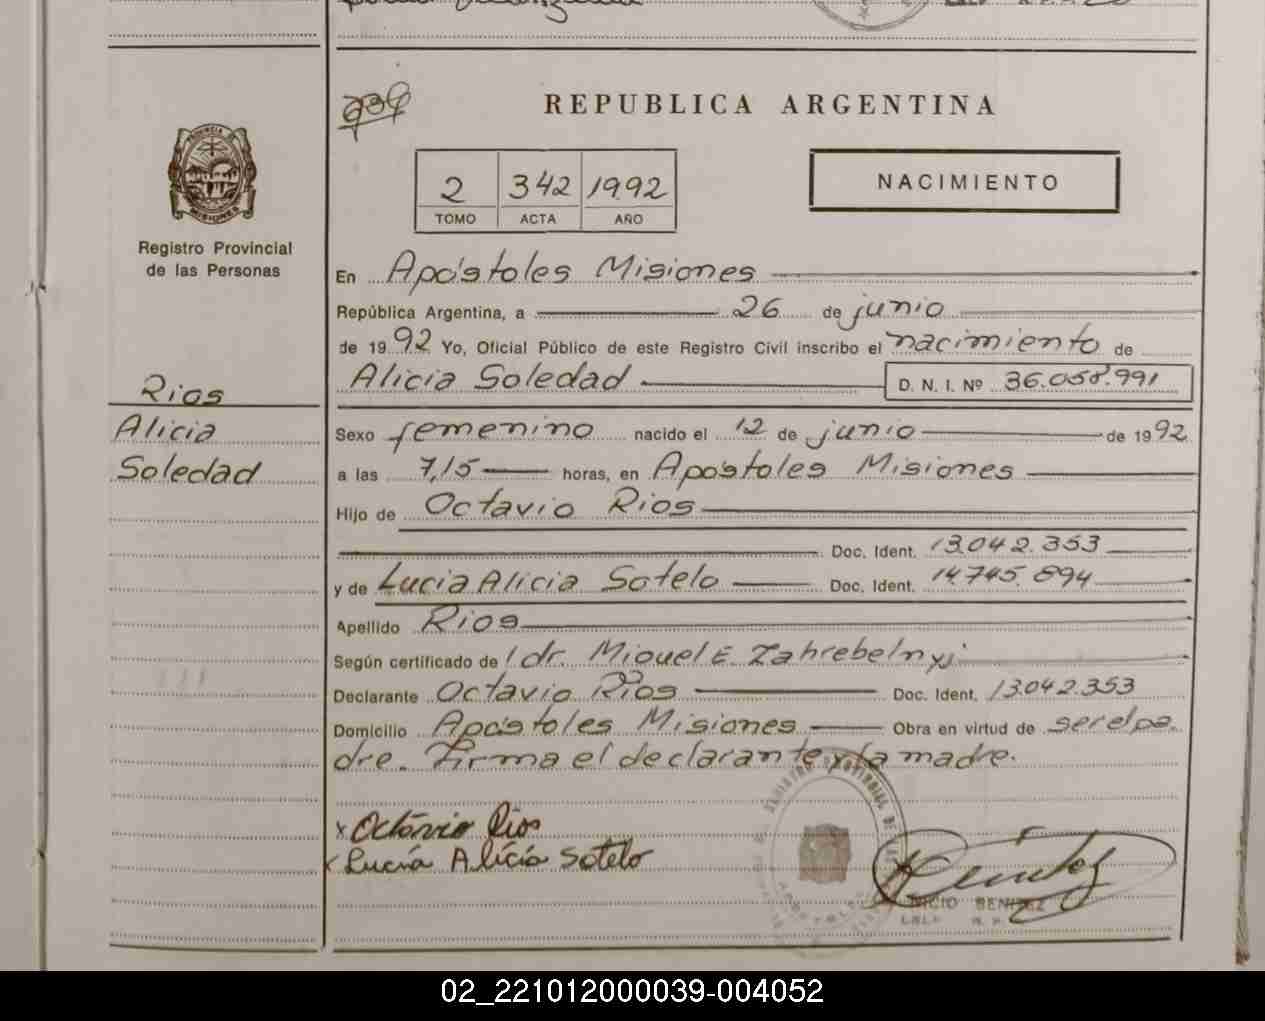 939
REPUBLICA ARGENTINA
2 342 1992
TOMO ACTA AÑO
NACIMIENTO
PROVINCIA DE
MISIONES
Registro Provincial
de las Personas
En Apóstoles Misiones
República Argentina, a 26 de junio
de 1992 Yo, Oficial Público de este Registro Civil inscribo el nacimiento de
Alicia Soledad D. N. I. Nº 36.058.991
Rios
Alicia
Soledad
Sexo femenino nacido el 12 de junio de 1992
a las 7,15 horas, en Apóstoles Misiones
Hijo de Octavio Rios
Doc. Ident. 13.042.353
y de Lucia Alicia Sotelo Doc. Ident. 14.745.894
Apellido Rios
Según certificado de dr. Miguel E. Zahrebelnyj
Declarante Octavio Rios Doc. Ident. 13.042.353
Domicilio Apóstoles Misiones Obra en virtud de ser el pa-
dre. Firma el declarante y la madre.
x Octavio Rios
x Lucía Alicia Sotelo
BENITEZ
02_221012000039-004052